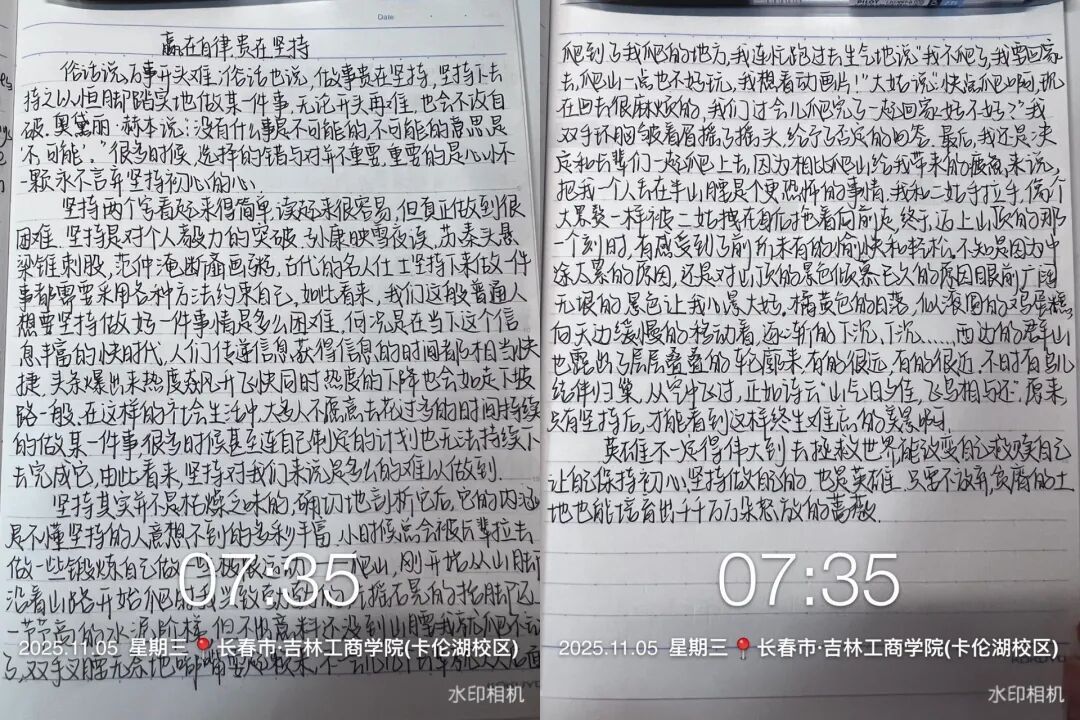 Date
赢在自律,贵在坚持
俗话说,万事开头难,俗话也说,做事贵在坚持,坚持下去
持之以恒脚踏实地做某一件事,无论开头再难,也会不攻自
破。奥黛丽·赫本说:"没有什么事是不可能的,不可能的意思是
不,可能"。"很多时候,选择的错与对并不重要,重要的是心怀
一颗永不言弃坚持初心的心。
坚持两个字看起来很简单,读起来很容易,但真正做到很
困难。坚持是对个人毅力的突破。孙康映雪夜读,苏秦头悬
梁锥刺股,范仲淹断齑画粥,古代的名人仕士坚持下来做一件
事都需要采用各种方法约束自己,如此看来,我们这般普通人
想要坚持做好一件事情是多么困难,何况是在当下这个信
息丰富的快时代,人们传递信息获得信息的时间都相当快
捷,头条爆出来热度飙升飞快同时热度的下降也会如走下坡
路一般。在这样的社会生活中,大多人不愿意去花过多的时间持续
的做某一件事,很多时候甚至连自己制定的计划也无法持续下
去完成它,由此看来,坚持对我们来说是多么的难以做到。
坚持其实并不是枯燥乏味的,确切地剖析它后,它的内涵
是不懂坚持的人意想不到的多彩丰富,小时候总会被长辈拉去
做一些锻炼自己做一些极限运动 爬山,刚开始从山脚下
沿着山路开始爬时我兴致勃勃的 摇摇晃晃的抬脚迈
一节节高的水泥阶梯,但不出意料还没到山腰我就爬不动
了,双手叉腰无奈地嘟嘴坐
爬到了我爬的地方,我连忙跑过去生气地说"我不爬了,我要回家
去,爬山一点也不好玩,我想看动画片!"大姑说"快点爬啊,现
在回去很麻烦的,我们过会儿爬完了一起回家好不好?"我
双手环胸皱着眉摇了摇头,给予了否定的回答。最后,我还是决
定和长辈们一起爬上去,因为相比爬山给我带来的疲惫来说,
把我一个人丢在半山腰是个更恐怖的事情,我和二姑手拉手,像个
大累赘一样被二姑拽在身后拖着向前走,终于,迈上山顶的那
一个刻时,有感受到了前所未有的愉快和轻松,不知是因为中
途太累的原因,还是对山顶的景色仰慕已久的原因眼前广阔
无垠的景色让我心累大好,橘黄色的日落,似滚圆的鸡蛋糕
向天边缓慢的移动着,逐渐的下沉,下沉......西边的群山
也露出了层层叠叠的轮廓来,有的很远,有的很近,不时有鸟儿
结伴归巢,从空中飞过,正如诗云"山气日夕佳,飞鸟相与还",原来,
只有坚持后,才能看到这样终生难忘的美景啊。
英雄不一定得伟大到去拯救世界能改变自己救赎自己
让自己保持初心、坚持做自己的,也是英雄。只要不放弃,贫瘠的土
地也能培育出千千万万朵怒放的蔷薇。
07:35
2025.11.05 星期三 长春市·吉林工商学院(卡伦湖校区)
水印相机
07:35
2025.11.05 星期三 长春市·吉林工商学院(卡伦湖校区)
水印相机